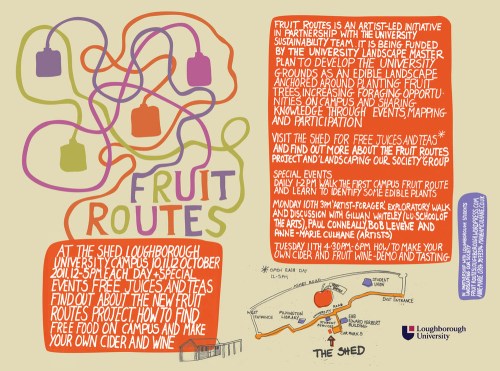 FRUIT
ROUTES
AT THE SHED LOUGHBOROUGH
UNIVERSITY CAMPUS 10,11,12 OCTOBER
2011, 12-5PM EACH DAY + SPECIAL
EVENTS FREE JUICES AND TEAS
FIND OUT ABOUT THE NEW FRUIT
ROUTES PROJECT, HOW TO FIND
FREE FOOD ON CAMPUS AND MAKE
YOUR OWN CIDER AND WINE
FRUIT ROUTES IS AN ARTIST-LED INITIATIVE
IN PARTNERSHIP WITH THE UNIVERSITY
SUSTAINABILITY TEAM. IT IS BEING FUNDED
BY THE UNIVERSITY LANDSCAPE MASTER
PLAN TO DEVELOP THE UNIVERSITY
GROUNDS AS AN EDIBLE LANDSCAPE
ANCHORED AROUND PLANTING FRUIT
TREES, INCREASING FORAGING OPPORTU-
NITIES ON CAMPUS AND SHARING
KNOWLEDGE THROUGH EVENTS, MAPPING
AND PARTICIPATION
VISIT THE SHED FOR FREE JUICES AND TEAS*
AND FIND OUT MORE ABOUT THE FRUIT ROUTES
PROJECT AND 'LANDSCAPING OUR SOCIETY' GROUP
SPECIAL EVENTS
DAILY 1-2PM WALK THE FIRST CAMPUS FRUIT ROUTE
AND LEARN TO IDENTIFY SOME EDIBLE PLANTS
MONDAY 10TH 3PM 'ARTIST-FORAGER' EXPLORATORY WALK
AND DISCUSSION WITH GILLIAN WHITELEY (LU SCHOOL OF
THE ARTS), PAUL CONNEALLY, BOB LEVENE AND
ANNE-MARIE CULHANE (ARTISTS)
TUESDAY 11TH 4-30PM-6PM HOW TO MAKE YOUR
OWN CIDER AND FRUIT WINE-DEMO AND TASTING
* OPEN EACH DAY
12-5PM
ASHBY ROAD
STUDENT
UNION
EAST ENTRANCE
WEST
ENTRANCE
PILKINGTON
LIBRARY
EDWARD HERBERT
BUILDING
CAR PARK 5
THE SHED
Loughborough
University